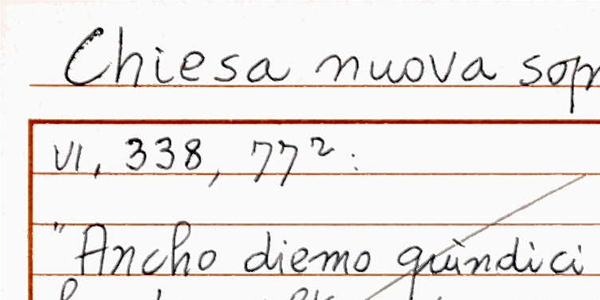 Chiesa nuova sopr
VI, 338, 77²:
"Ancho diemo quindici